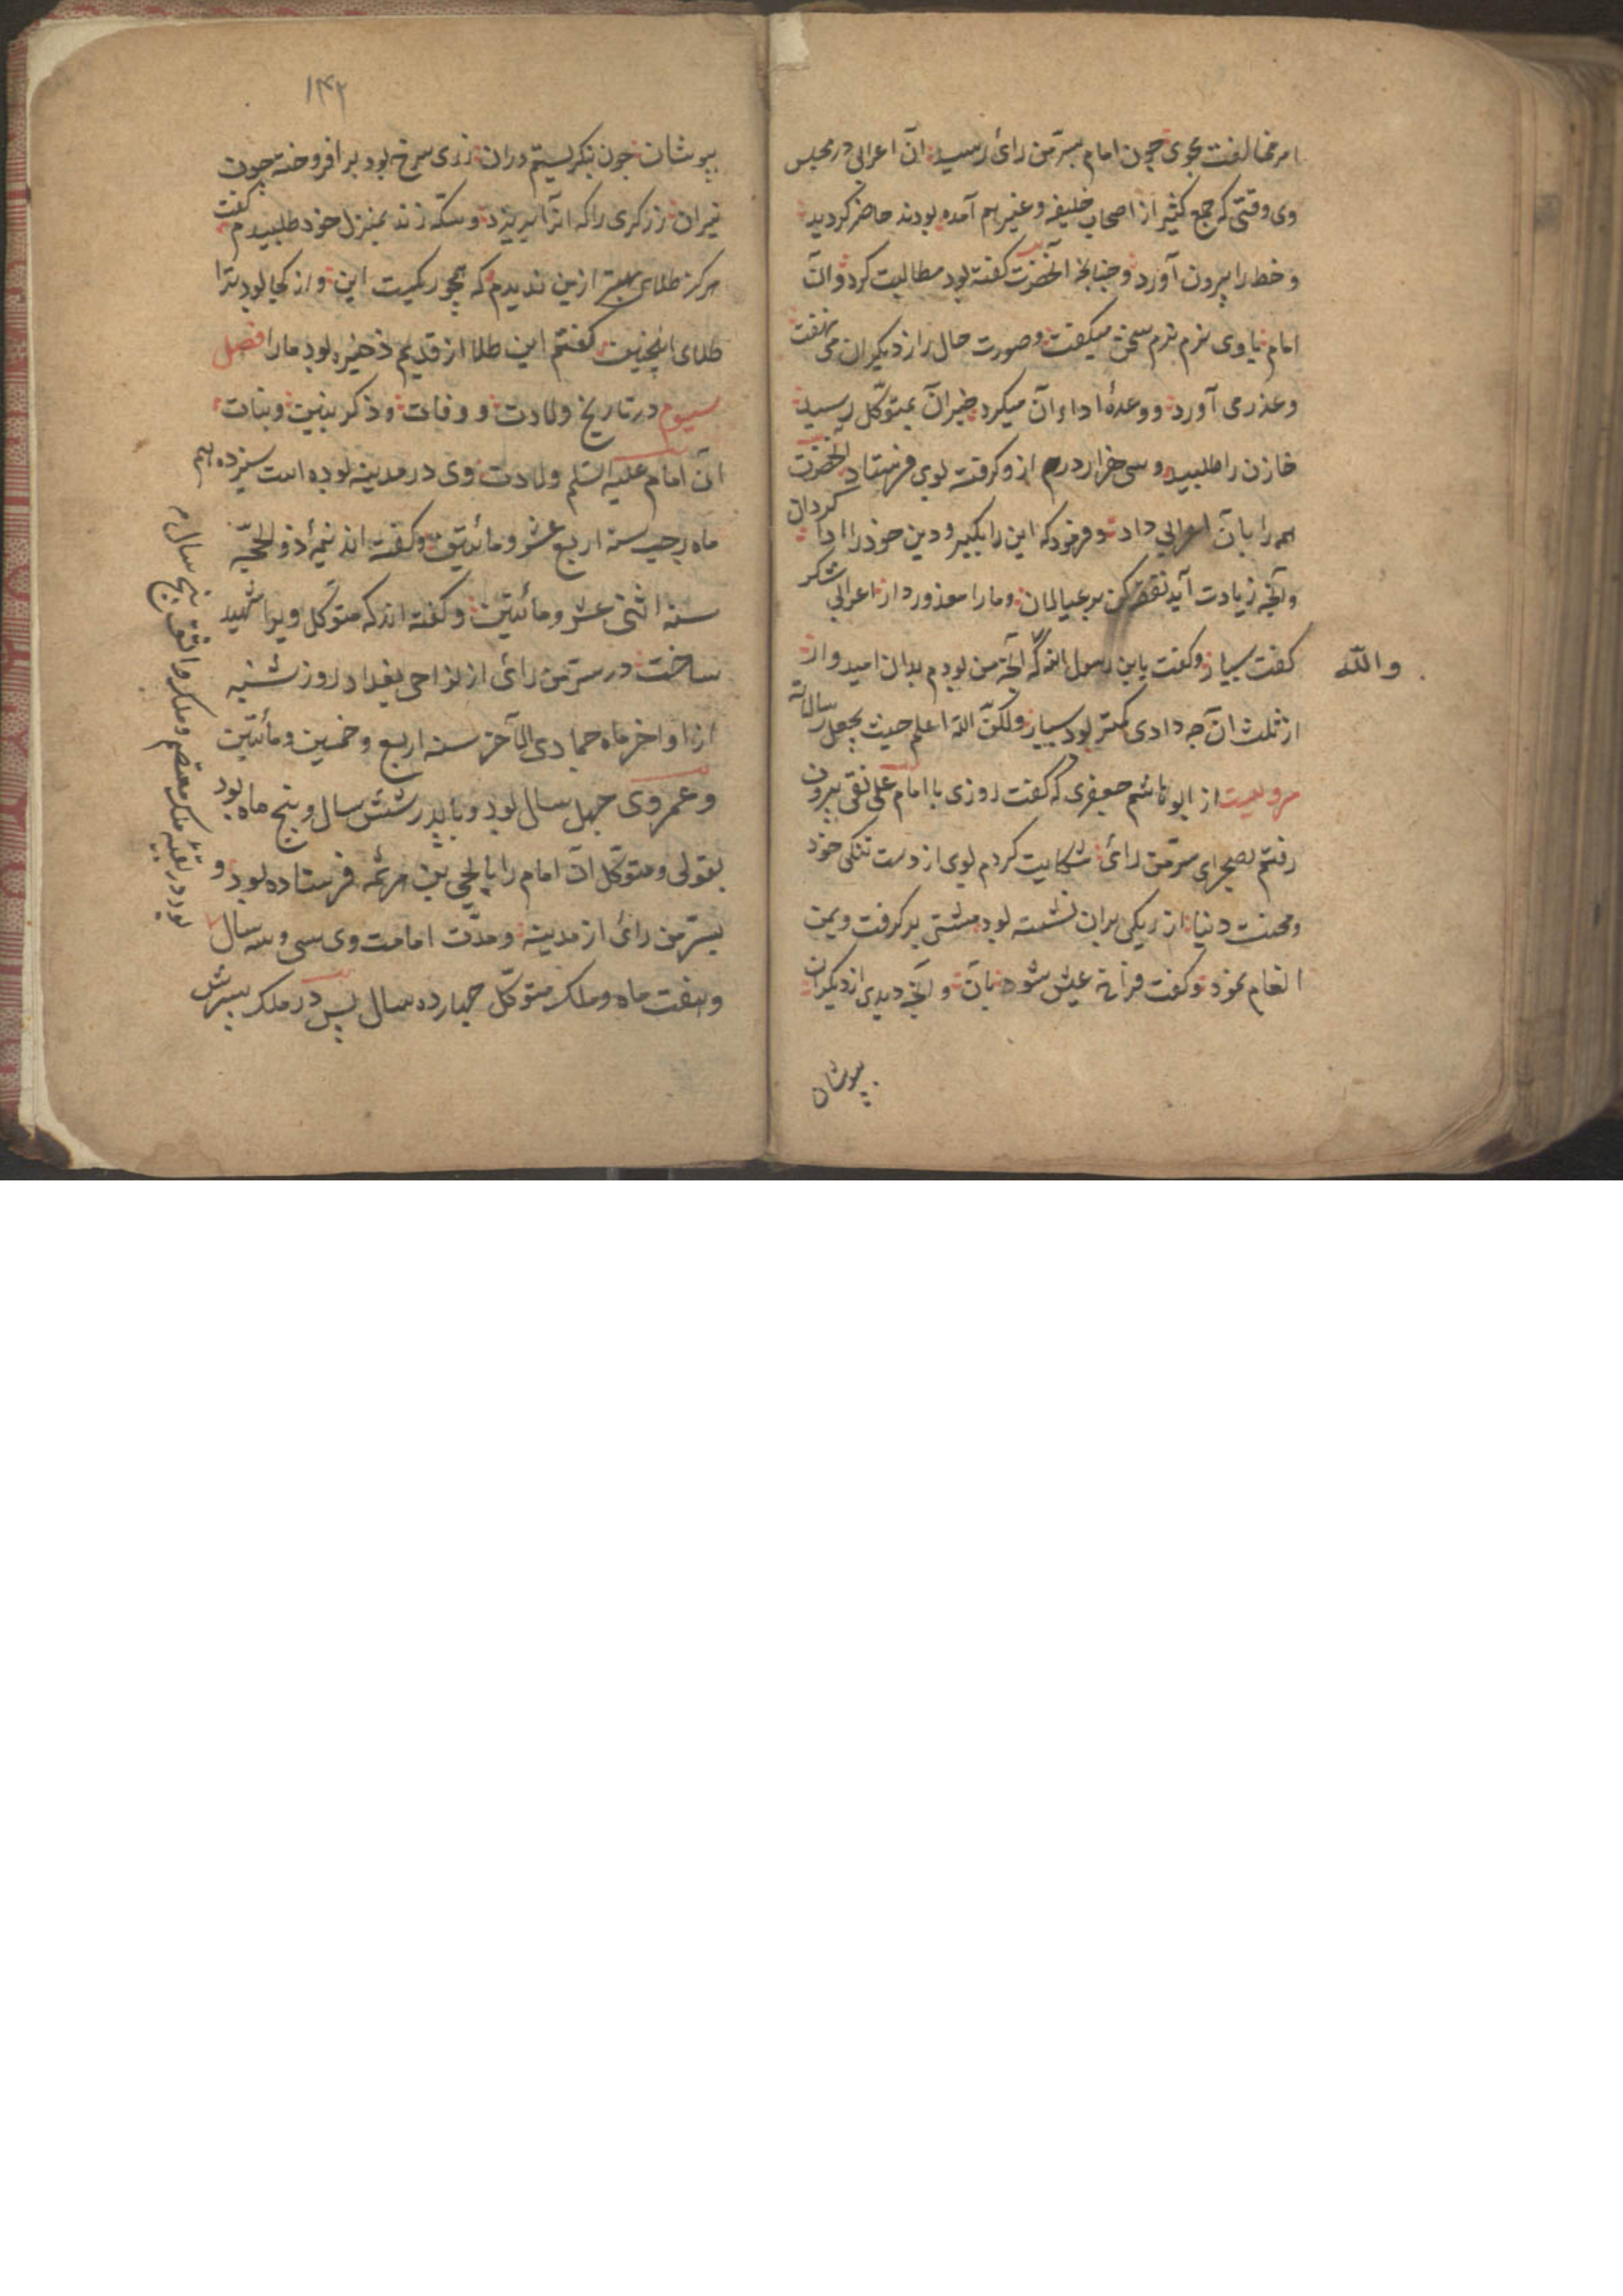 امر مخالفت مجوی چون امام بسرّمن رای رسید آن اعرابی در مجلس
وی وقتی که جمع کثیر از اصحاب خلیفه و غیر هم آمده بودند حاضر کردید
و خط را بیرون آورد و چنانچه آنحضرت کفته بود مطالبت کرد و آن
امام با وی نرم نرم سخن میکفت و صورت حال را از دیکران می نهفت
و عذر می آورد و وعدهٔ اداء آن میکرد خبر آن بمتوکّل رسید
خازن را طلبید و سی هزار درم ازو کرفته بوی فرستاد آنحضرت
همه را بآن اعرابی داد و فرمود که این را بکیر و دین خود را ادا کردان
و آنچه زیادت آید نفقه کن بر عیالمان و ما را معذور دار اعرابی شکر
کفت بسیار و کفت یابن رسول الله که آنچه من بودم بدان امیدوار
والله
از ثلث آن چه دادی کمتر بود بسیار ولکنّ الله اعلم حیث یجعل رسالاته
مرویست از ابو هاشم جعفری که کفت روزی با امام علی نقی بیرون
رفتم بصحرای سرّمن رای شکایت کردم بوی از دست تنکی خود
و محنت دنیا از ریکی بران نشسته بود مشتی بر کرفت و بمن
انعام نمود و کفت فراخ عیش شو بآن و آنچه دیدی از دیکران
بپوشان
۱۴۲
بپوشان چون بنکریستم دران زری سرخ بود بر افروخته چون
نیران زرکری را که انرا بریزد و سکّه زند بمنزل خود طلبیدم کفت
هرکز طلای بهتر ازین ندیدم که بجو ریکیست این و از کجا بود ترا
طلای اینچنین کفتم این طلا از قدیم ذخیره بود ما را فصل
سیوم در تاریخ ولادت و وفات و ذکر بنین و بنات
آن امام علیه السّلم ولادت وی در مدینه بوده است سیزدهم
ماه رجب سنه اربع عشر و مائتین و کفته اند نیمهٔ ذو الحجّه
سنه اثنی عشر و مائتین و کفته اند که متوکّل ویرا شهید
ساخت در سرّمن رای از نواحی بغداد روز شنبه
از اواخر ماه جمادی الآخر سنه اربع و خمسین و مائتین
و عمر وی چهل سال بود و با پدر شش سال و پنج ماه بود
بقولی و متوکّل آن امام را با یحیی بن هرثمه فرستاده بود و
بسرّمن رای از مدینه و مدّت امامت وی سی و سه سال
و هفت ماه و ملک متوکّل چهارده سال پس در ملک پسرش
بود در بقیهٔ ملک معتصم و ملک واثق پنج سال